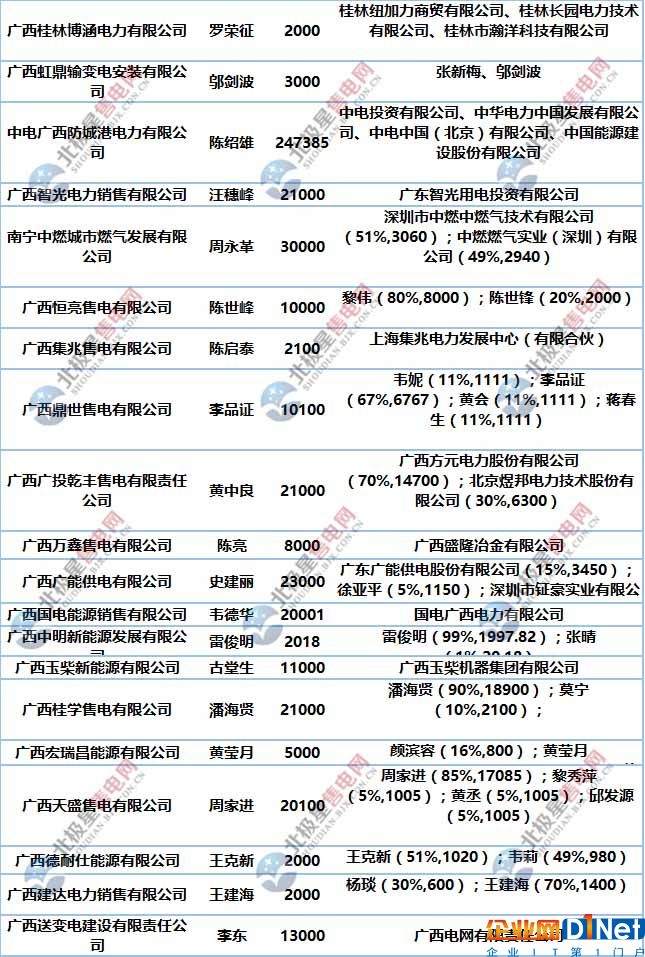 广西桂林博涵电力有限公司 罗荣征 2000 桂林纽加力商贸有限公司、桂林长园电力技术
有限公司、桂林市瀚洋科技有限公司
广西虹鼎输变电安装有限公
司 邬剑波 3000 张新梅、邬剑波
中电广西防城港电力有限公
司 陈绍雄 247385 中电投资有限公司、中华电力中国发展有限公
司、中电中国（北京）有限公司、中国能源建
设股份有限公司
广西智光电力销售有限公司 汪穗峰 21000 广东智光用电投资有限公司
南宁中燃城市燃气发展有限
公司 周永革 30000 深圳市中燃中燃气技术有限公司
（51%,3060）；中燃燃气实业（深圳）有限
公司（49%,2940）
广西恒亮售电有限公司 陈世峰 10000 黎伟（80%,8000）；陈世锋（20%,2000）
广西集兆售电有限公司 陈启泰 2100 上海集兆电力发展中心（有限合伙）
广西鼎世售电有限公司 李品证 10100 韦妮（11%,1111）；李品证
（67%,6767）；黄会（11%,1111）；蒋春
生（11%,1111）
广西广投乾丰售电有限责任
公司 黄中良 21000 广西方元电力股份有限公司
（70%,14700）；北京煜邦电力技术股份有
限公司（30%,6300）
广西万鑫售电有限公司 陈亮 8000 广西盛隆冶金有限公司
广西广能供电有限公司 史建丽 23000 广东广能供电股份有限公司（15%,3450）；
徐亚平（5%,1150）；深圳市钲豪实业有限公
广西国电能源销售有限公司 韦德华 20001 国电广西电力有限公司
广西中明新能源发展有限公
司 雷俊明 2018 雷俊明（99%,1997.82）；张晴
（1%,20.18）
广西玉柴新能源有限公司 古堂生 11000 广西玉柴机器集团有限公司
广西桂学售电有限公司 潘海贤 21000 潘海贤（90%,18900）；莫宁
（10%,2100）；
广西宏瑞昌能源有限公司 黄莹月 5000 颜滨容（16%,800）；黄莹月
广西天盛售电有限公司 周家进 20100 周家进（85%,17085）；黎秀萍
（5%,1005）；黄丞（5%,1005）；邱发源
（5%,1005）
广西德耐仕能源有限公司 王克新 2000 王克新（51%,1020）；韦莉（49%,980）
广西建达电力销售有限公司 王建海 2000 杨琰（30%,600）；王建海（70%,1400）
广西送变电建设有限责任公
司 李东 13000 广西电网有限责任公司
北极星售电网
SHOUDIAN.BJX.COM.CN
企业网D1Net
企业IT第1门户